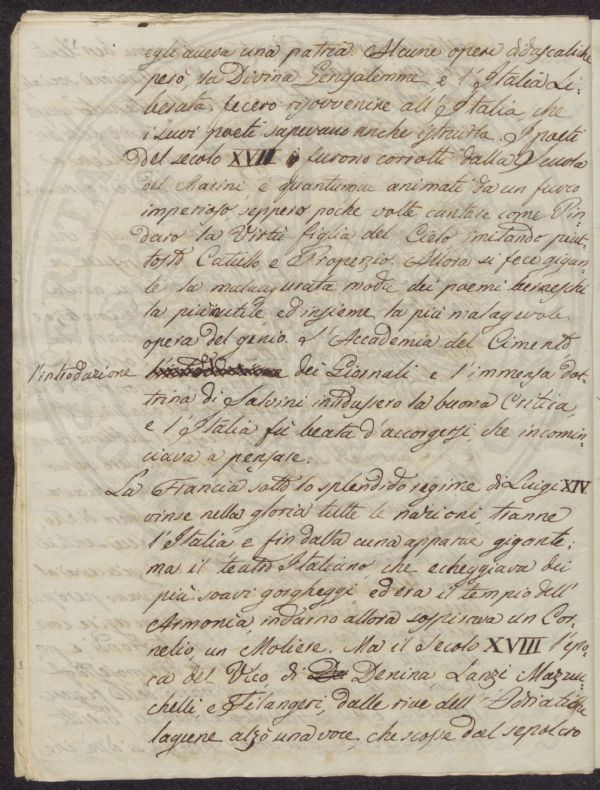 egli aveva una patria. Alcune opere didascaliche
però, la Divina Gerusalemme, e l'Italia Li-
berata, fecero risovvenire all'Italia, che
i suoi poeti sapevano anche istruirla. I poeti
del secolo XVII furono corrotti dalla Scuola
del Marini e quantunque animati da un fuoco
imperioso, seppero poche volte cantare come Pin-
daro la Virtù figlia del Cielo imitando piut-
tosto Catullo, e Properzio. Allora si fece gigan-
te la malaugurata moda dei poemi berneschi
la più inutile ed insieme la più malagevole
opera del genio. L'Accademia del Cimento,
l'introduzione dei Giornali e l'immensa dot-
trina di Salvini introdussero la buona Critica,
e l'Italia fù beata d'accorgersi che incomin-
ciava a pensare.
La Francia sotto lo splendido regime di Luigi XIV.
vinse nella gloria tutte le nazioni, tranne
l'Italia e fin dalla cuna apparve gigante;
ma il teatro Italiano, che echeggiava dei
più soavi gorgheggi, ed era il tempio dell'
Armonia, indarno allora sospirava un Cor-
nelio, un Moliere. Ma il Secolo XVIII l'epo-
ca del Vico di Denina Lanzi Mazzu-
chelli, e Filangeri, dalle rive dell'Adriatiche
lagune alzò una voce, che scosse dal sepolcro